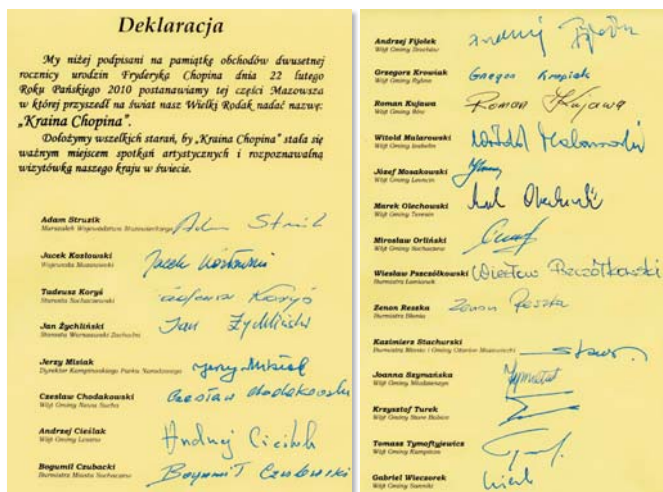 Deklaracja
My niżej podpisani na pamiątkę obchodów dwusetnej
rocznicy urodzin Fryderyka Chopina dnia 22 lutego
Roku Pańskiego 2010 postanawiamy tej części Mazowsza
w której przyszedł na świat nasz Wielki Rodak nadać nazwę:
„Kraina Chopina".
Dołożymy wszelkich starań, by „Kraina Chopina" stała się
ważnym miejscem spotkań artystycznych i rozpoznawalną
wizytówką naszego kraju w świecie.
Adam Struzik
Marszałek Województwa Mazowieckiego
Adam Struzik
Jacek Kozłowski
Wojewoda Mazowiecki
Jacek Kozłowski
Tadeusz Koryś
Starosta Sochaczewski
Tadeusz Koryś
Jan Żychliński
Starosta Warszawski Zachodni
Jan Żychliński
Jerzy Misiak
Dyrektor Kampinoskiego Parku Narodowego
Jerzy Misiak
Czesław Chodakowski
Wójt Gminy Nowa Sucha
Czesław Chodakowski
Andrzej Cieślak
Wójt Gminy
Andrzej Cieślak
Bogumił Czubacki
Burmistrz Miasta Sochaczew
Andrzej Fijołek
Wójt Gminy Brochów
Andrzej Fijołek
Grzegorz Krowiak
Wójt Gminy
Roman Kujawa
Wójt Gminy Iłów
Roman Kujawa
Witold Malarowski
Wójt Gminy Izabelin
Witold Malarowski
Józef Mosakowski
Wójt Gminy Leoncin
Marek Olechowski
Wójt Gminy Teresin
Marek Olechowski
Mirosław Orliński
Wójt Gminy Sochaczew
Wiesław Pszczółkowski
Burmistrz Łomianek
Wiesław Pszczółkowski
Zenon Reszka
Burmistrz Błonia
Zenon Reszka
Kazimierz Stachurski
Burmistrz Miasta i Gminy Ożarów Mazowiecki
Joanna Szymańska
Wójt Gminy Młodzieszyn
Krzysztof Turek
Wójt Gminy Stare Babice
Tomasz Tymoftyjewicz
Wójt Gminy Kampinos
Gabriel Wieczorek
Wójt Gminy Sanniki